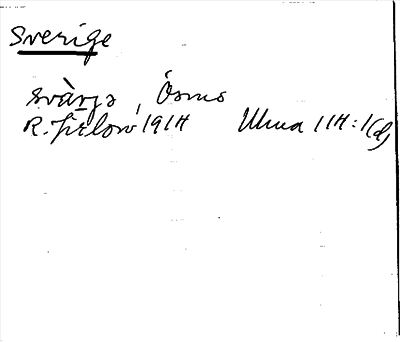 Sverige
svärjə, Ösmo
R. Jirlow 1914 Ulma 114:1(d)